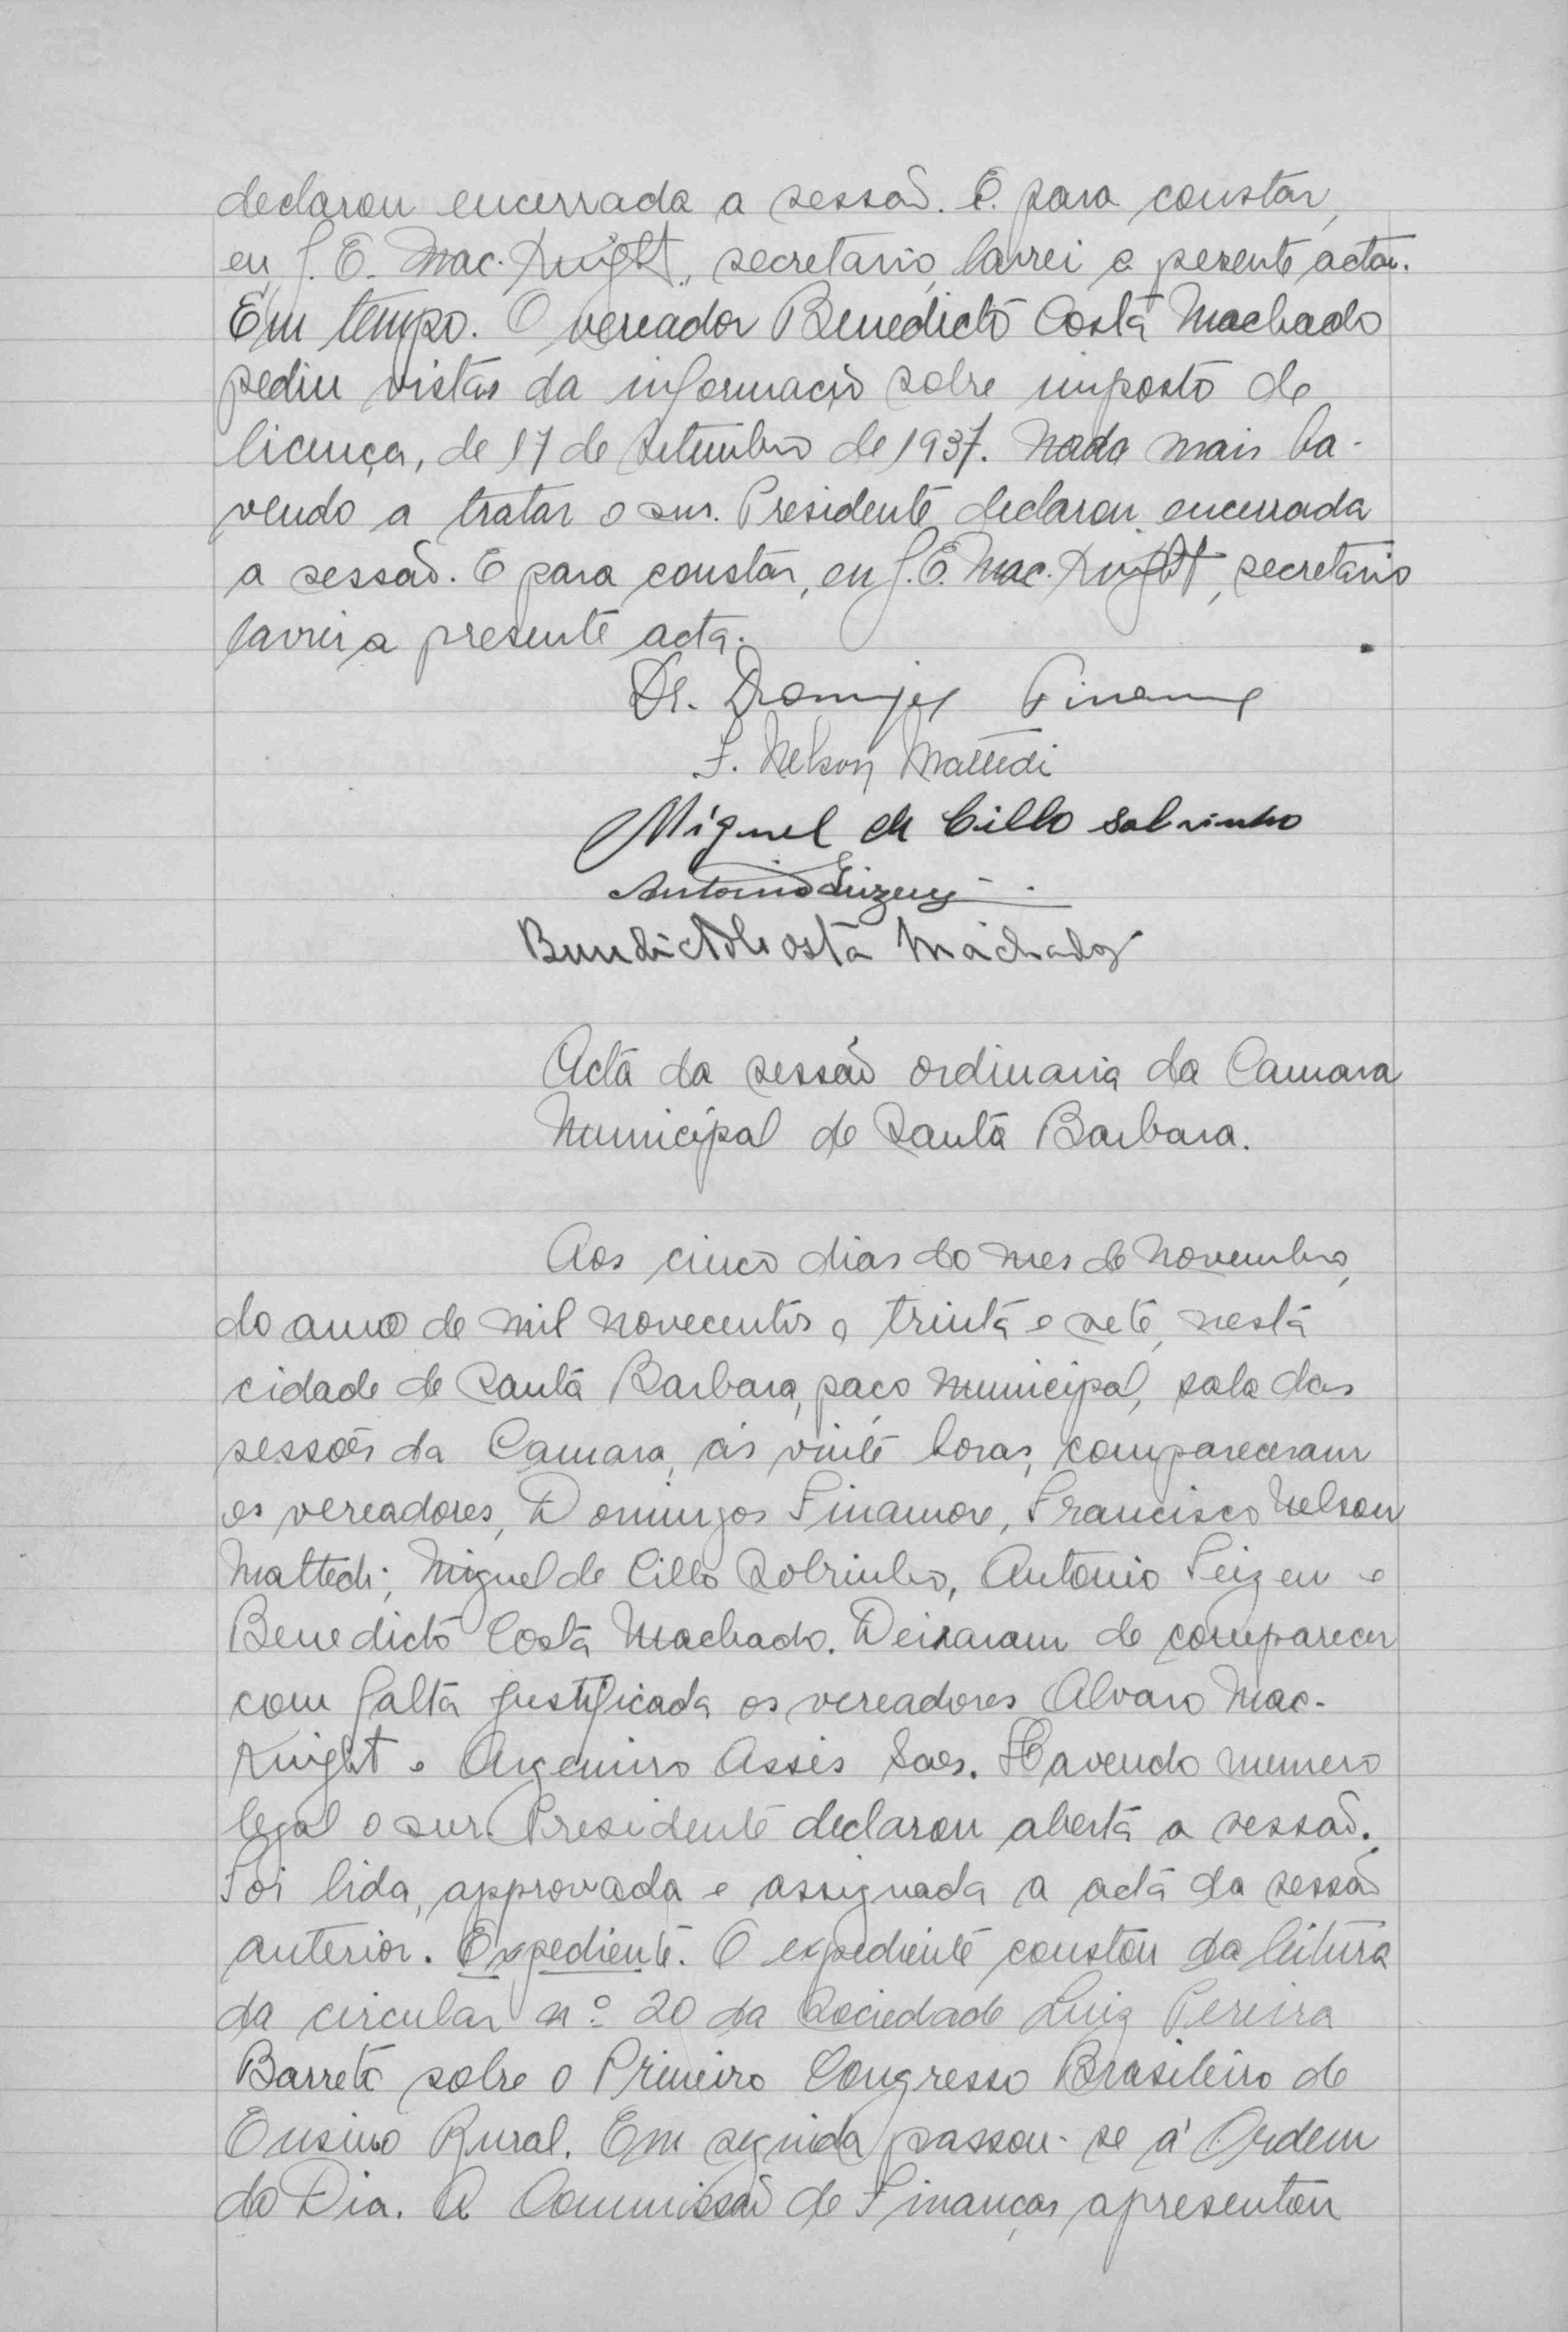 declarou encerrada a sessão. E para constar,
eu J. E. Mac. Knight, secretario, lavrei a persente acta.
Em tempo. O vereador Benedicto Costa Machado
pediu vistas da informação sobre imposto de
licença, de 17 de Setembro de 1937. Nada mais ha-
vendo a tratar o snr. Presidente declarou encerrada
a sessão. E para constar, eu J. E. Mac. Knight, secretario
lavrei a presente acta.
Dr. Domingos Finamore
F. Nelson Mattedi
Miguel de Cillo Sobrinho
Antonio
Benedicto Costa Machado
Acta da sessão ordinaria da Camara
Municipal de Santa Barbara.
Aos cinco dias do mes de Novembro,
do anno de mil novecentos e trinta e sete, nesta
cidade de Santa Barbara, paço Municipal, sala das
sessões da Camara, ás vinte horas, compareceram
os vereadores, Domingos Finamore, Francisco Nelson
Mattedi, Miguel de Cillo Sobrinho, Antonio e
Benedicto Costa Machado. Deixaram de comparecer
com falta justificada os vereadores Alvaro Mac-
Knight e Argemiro Assis Saes. Havendo numero
legal o snr. Presidente declarou aberta a sessão.
Foi lida, approvada e assignada a acta da sessão
anterior. Expediente. O expediente constou da leitura
da circular nº 20 da Sociedade Luiz Pereira
Barreto sobre o Primeiro Congresso Brasileiro de
Ensino Rural. Em seguida passou-se á Ordem
do Dia. A Commissão de Finanças apresentou